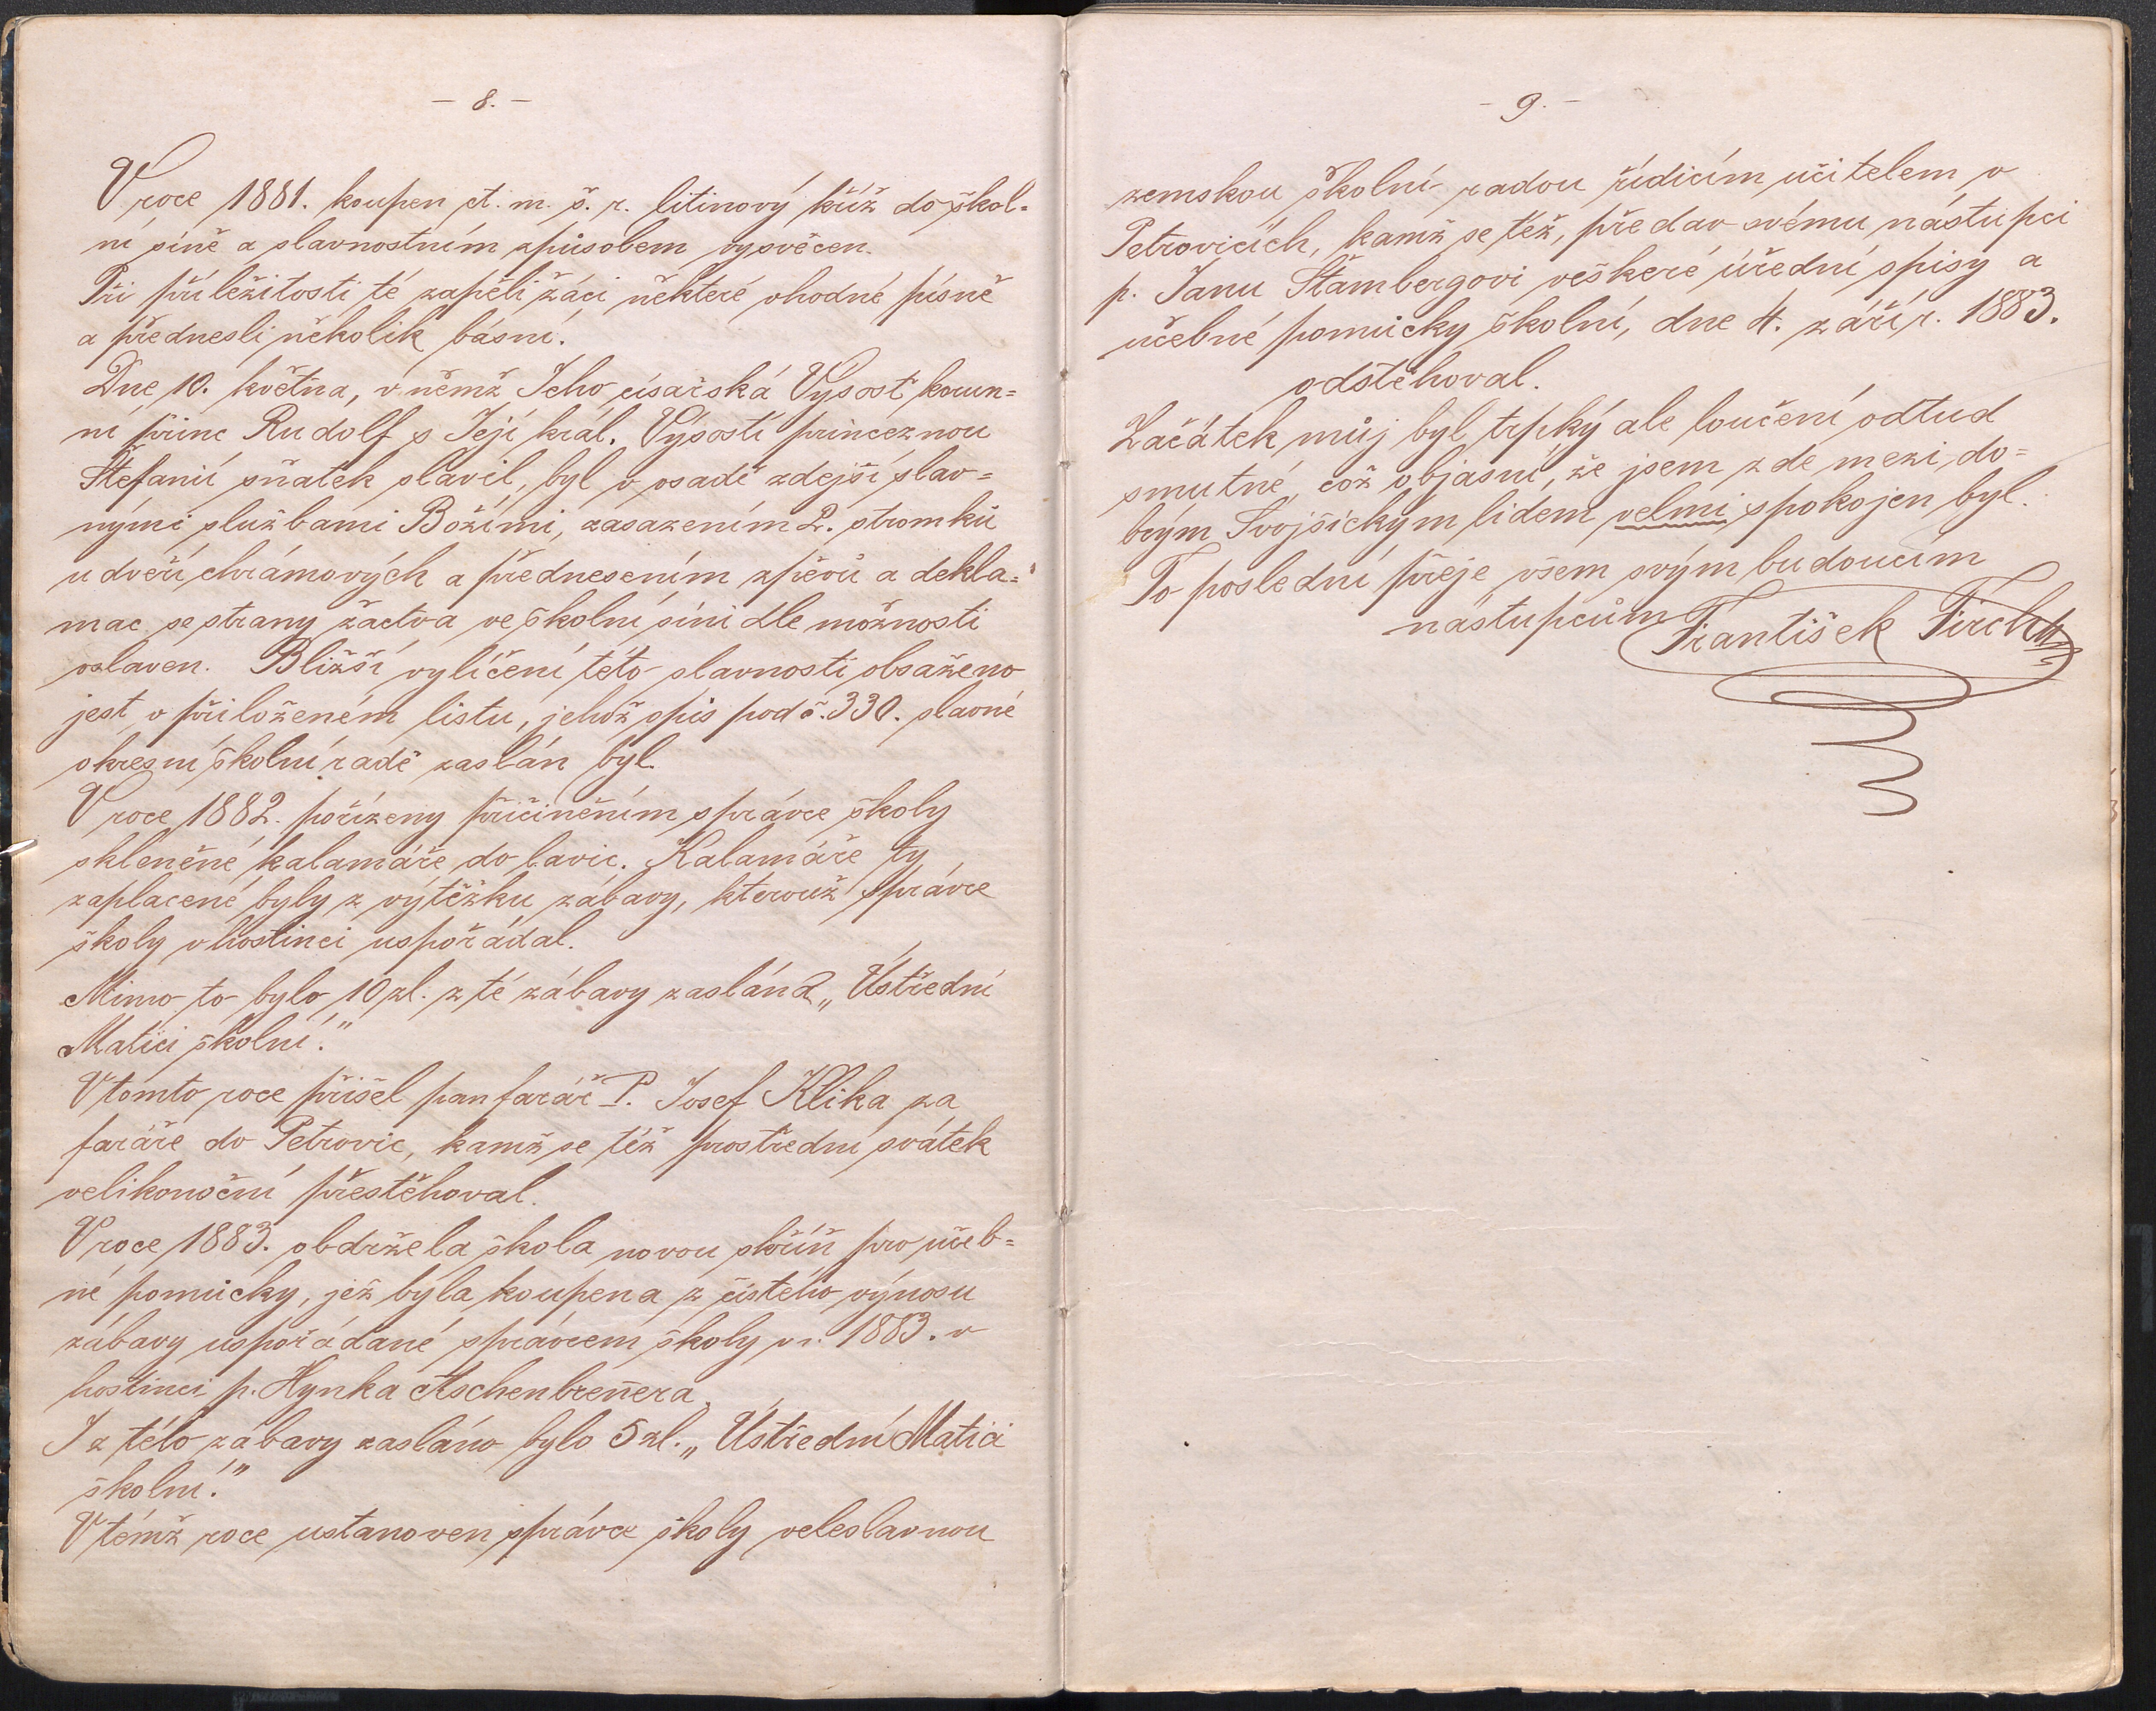 - 8. -
V roce 1881. koupen ct. m. š. r. litinový kříž do škol=
ní síně a slavnostním způsobem vysvěcen.
Při příležitosti té zapěli žáci některé vhodné písně
a přednesli několik básní.
Dne 10. května, v němž Jeho císařská Výsosť korun=
ní princ Rudolf s Její král. Výsostí princeznou
Štefanií sňatek slavil, byl v osadě zdejší slav=
nými službami Božími, zasazením 2. stromků
u dveří chrámových a přednesením zpěvů a dekla=
mac se strany žactva ve školní síni dle možnosti
oslaven. Bližší vylíčení této slavnosti obsaženo
jest v přiloženém listu, jehož opis pod č. 330. slavné
okresní školní radě zaslán byl.
V roce 1882. pořízeny přičiněním správce školy
skleněné kalamáře do lavic. Kalamáře ty
zaplacené byly z výtěžku zábavy, kterouž správce
školy v hostinci uspořádal.
Mimo to bylo 10 zl. z té zábavy zaslána „Ústřední
Matici školní."
V tomto roce přišel pan farář P. Josef Klika za
faráře do Petrovic, kamž se též prostřední svátek
velikonoční přestěhoval.
V roce 1883. obdržela škola novou skříň pro učeb=
né pomůcky, jež byla koupena z čistého výnosu
zábavy uspořádané správcem školy v r. 1883. v
hostinci p. Hynka Aschenbreňera.
I z této zábavy zasláno bylo 5 zl. „Ústřední Matici
školní."
V témž roce ustanoven správce školy veleslavnou
- 9. -
zemskou školní radou řídicím učitelem v
Petrovicích, kamž se též, předav svému nástupci
p. Janu Štambergovi veškeré úřední spisy a
učebné pomůcky školní, dne 4. září r. 1883.
odstěhoval.
Začátek můj byl trpký ale loučení odtud
smutné, což objasní, že jsem zde mezi do=
brým Svojšickým lidem velmi spokojen byl.
To poslední přeje všem svým budoucím
nástupcům František Tirch